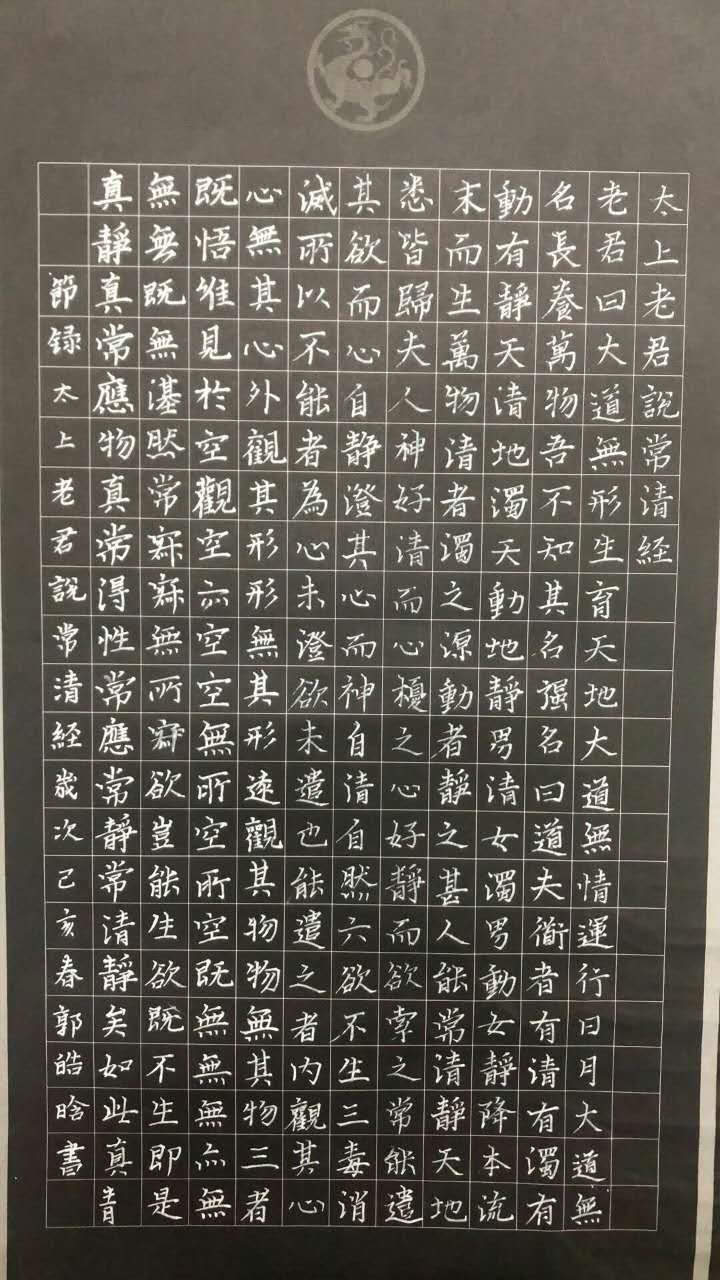 太上老君說常清経
老君曰大道無形生育天地大道無情運行日月大道無
名長養萬物吾不知其名强名曰道夫衜者有清有濁有
動有靜天清地濁天動地靜男清女濁男動女靜降本流
末而生萬物清者濁之源動者靜之甚人能常清靜天地
悉皆歸夫人神好清而心擾之心好靜而欲索之常能遣
其欲而心自静澄其心而神自清自然六欲不生三毒消
滅所以不能者為心未澄欲未遣也能遣之者内觀其心
心無其心外觀其形形無其形遠觀其物物無其物三者
既悟唯見於空觀空亦空空無所空所空既無無無亦無
無無既無湛然常寂寂無所寂欲豈能生欲既不生即是
真靜真常應物真常得性常應常靜常清靜矣如此真
節録太上老君說常清経歲次己亥春郭皓晗書